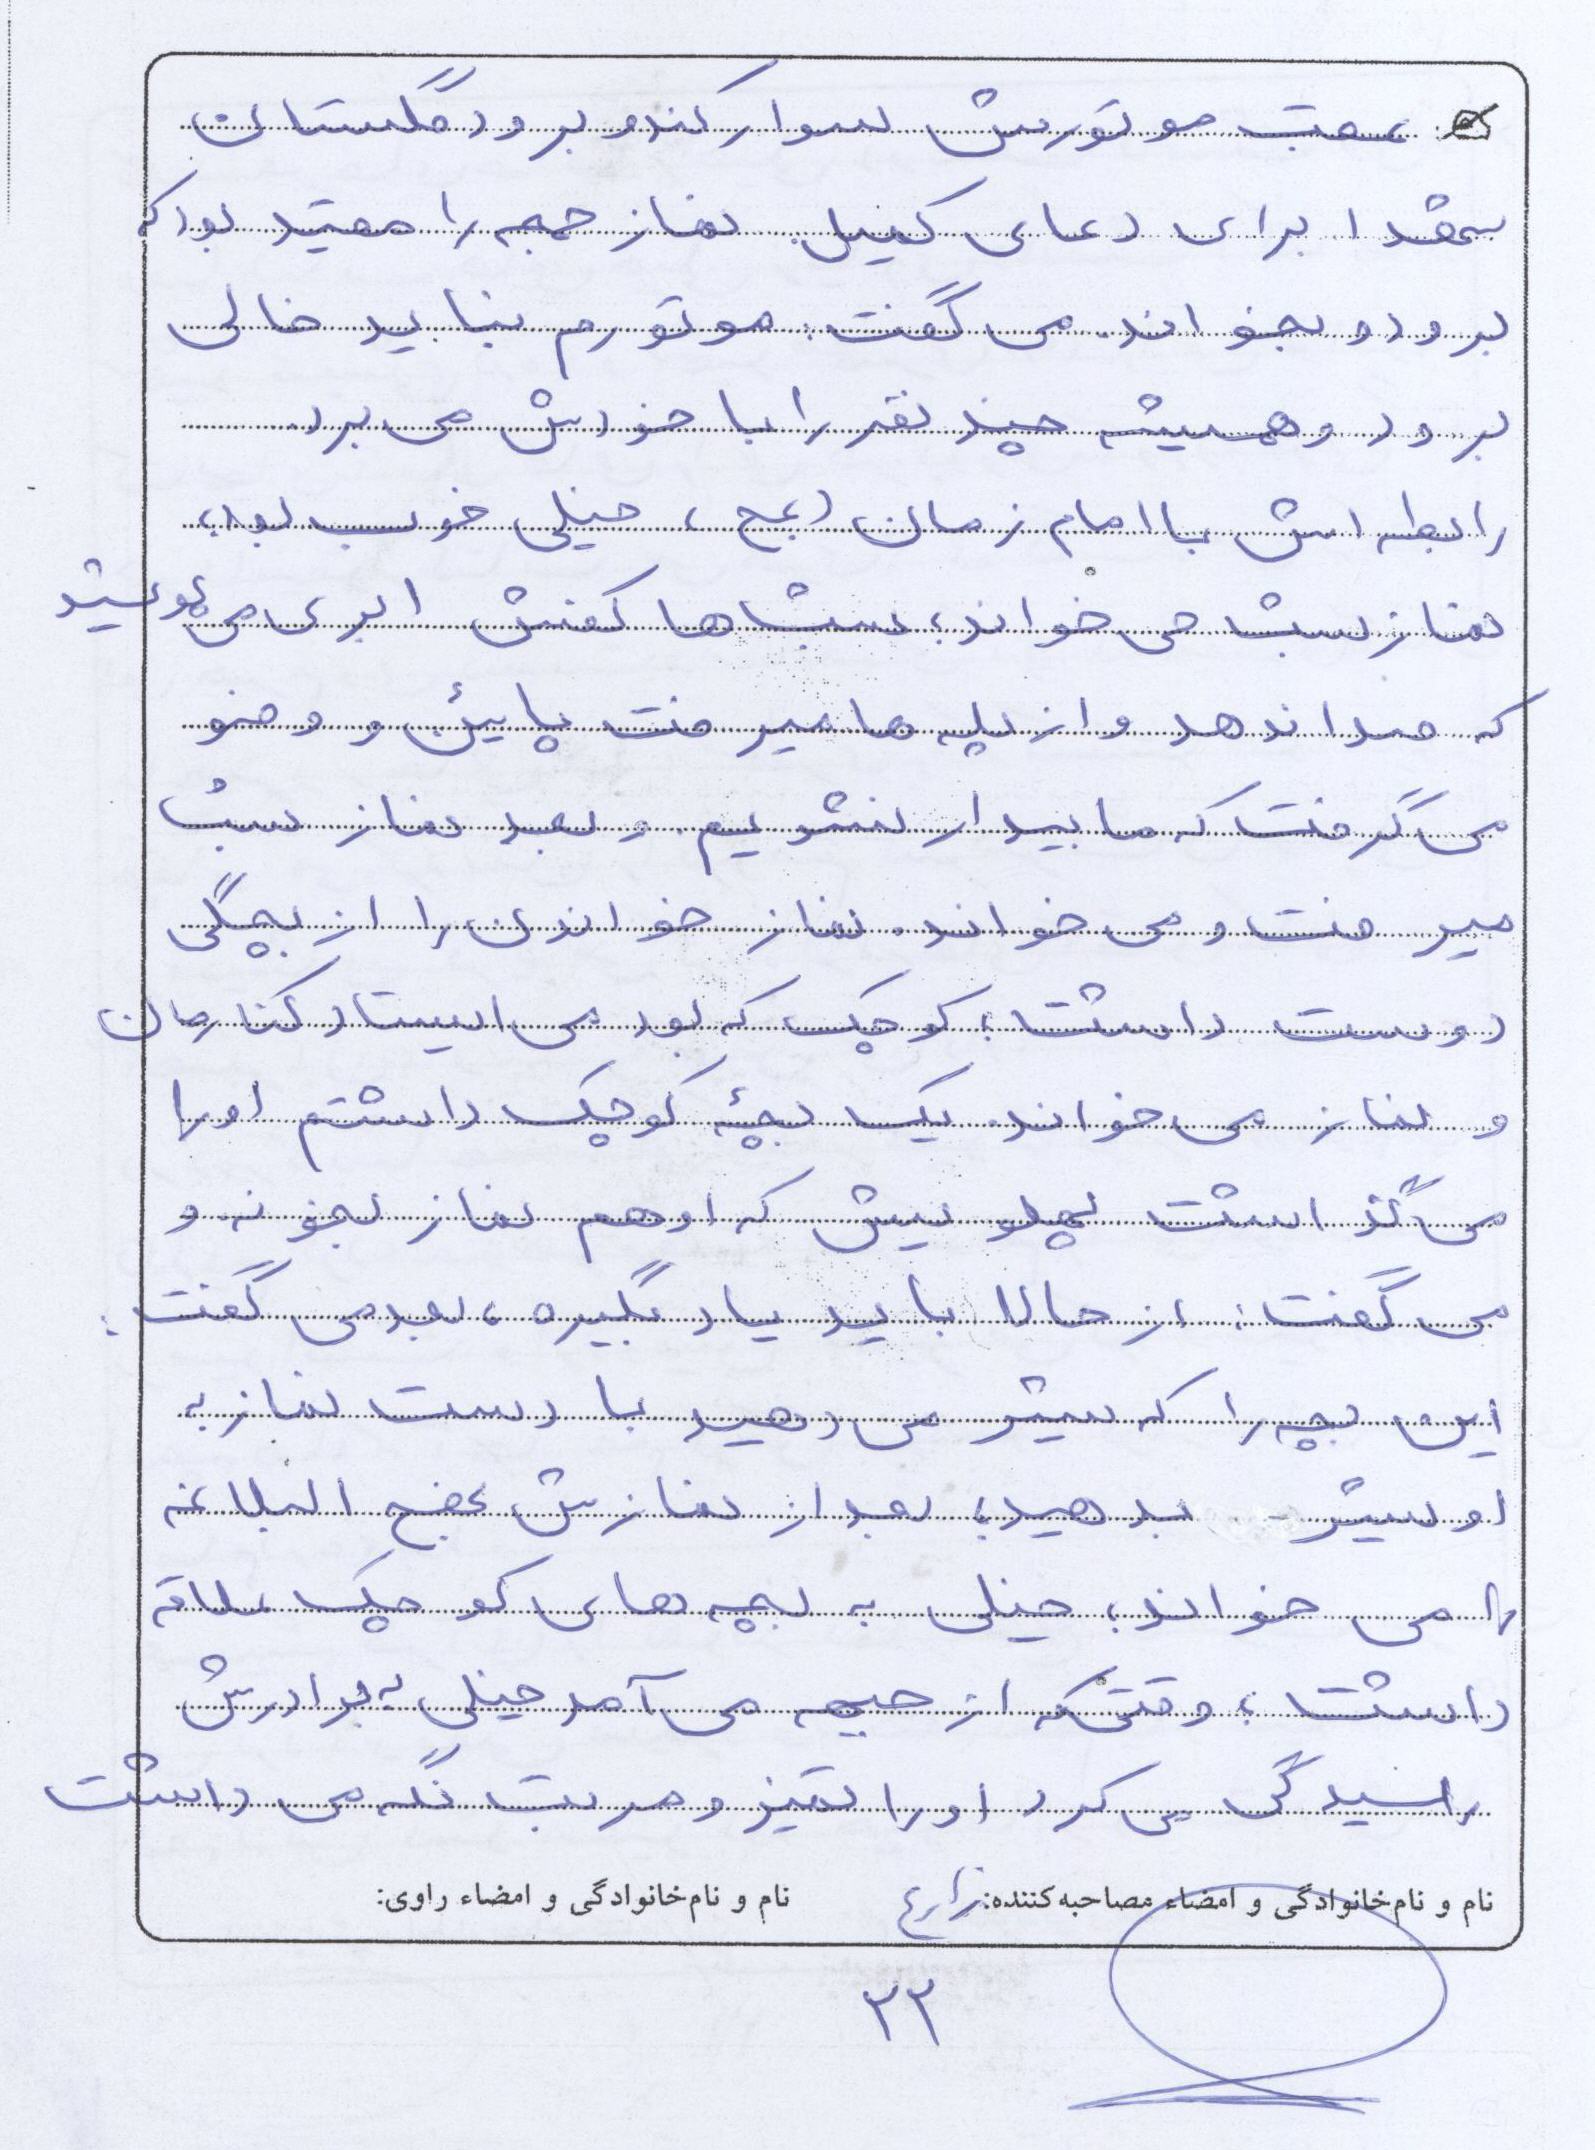 عقب موتورش سوار کند و برود گلستان
شهدا برای دعای کمیل. نماز جمعه را مقید بود که
برود و بخواند. می گفت: موتورم نباید خالی
برود و همیشه چند نفر را با خودش می برد.
رابطه اش با امام زمان (عج) خیلی خوب بود،
نماز شب می خواند، شب ها کفش ابری می پوشید
که صدا ندهد و از پله ها میرفت پایین و وضو
می گرفت که ما بیدار نشویم. و بعد نماز شب
میرفت و می خواند. نماز خواندن را از بچگی
دوست داشت؛ کوچک که بود می ایستاد کنارمان
و نماز می خواند. یک بچهٔ کوچک داشتم او را
می گذاشت پهلوییش که او هم نماز بخونه و
می گفت: از حالا باید یاد بگیره، بعد می گفت:
این بچه را که شیر می دهید با دست نماز به
او شیر بدهید؛ بعد از نمازش نهج البلاغه
را می خواند، خیلی به بچه های کوچک علاقه
داشت؛ وقتی که از جبهه می آمد خیلی به برادرش
رسیدگی می کرد او را تمیز و مرتب نگه می داشت
نام و نام خانوادگی و امضاء مصاحبه کننده: زارع نام و نام خانوادگی و امضاء راوی:
۲۲